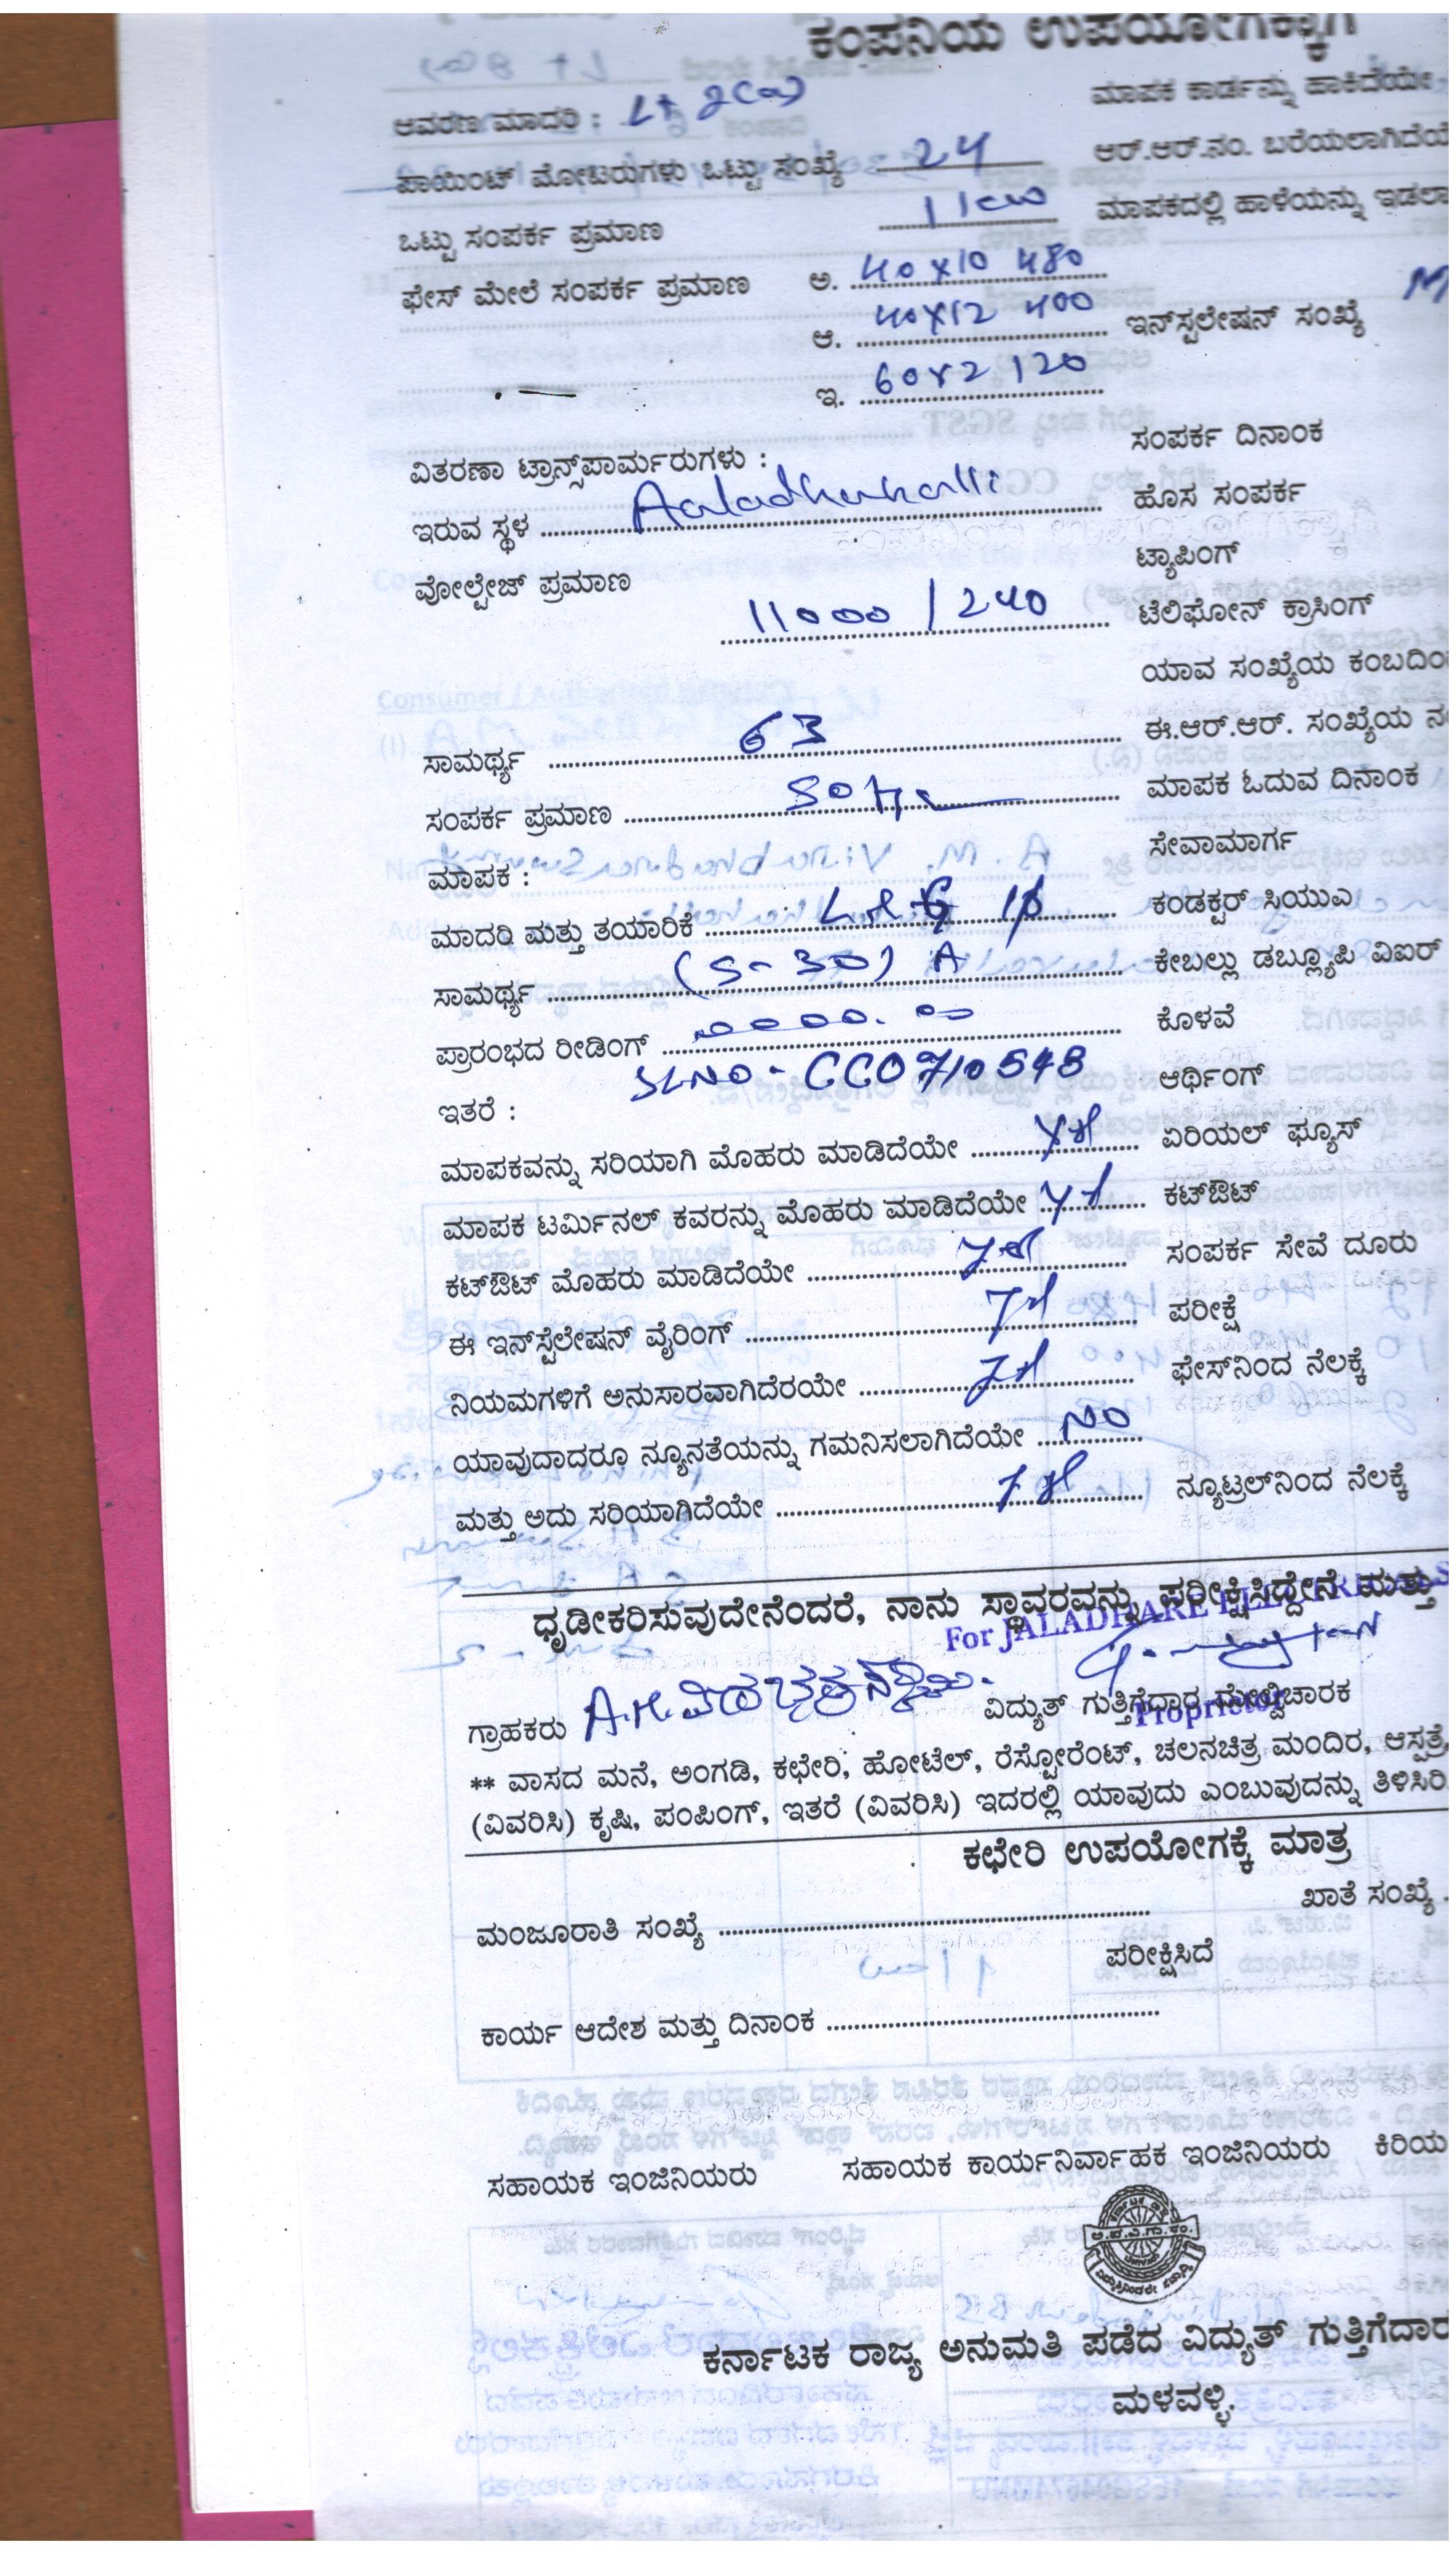 ಕಂಪನಿಯ ಉಪಯೋಗಕ್ಕಾಗಿ
ಆವರಣ ಮಾದರಿ : Lt 2(a) ಮಾಪಕ ಕಾರ್ಡನ್ನು ಹಾಕಿದೆಯೇ
ಪಾಯಿಂಟ್ ಮೋಟರುಗಳು ಒಟ್ಟು ಸಂಖ್ಯೆ 24 ಆರ್.ಆರ್.ನಂ. ಬರೆಯಲಾಗಿದೆಯೇ
ಒಟ್ಟು ಸಂಪರ್ಕ ಪ್ರಮಾಣ 1 kw ಮಾಪಕದಲ್ಲಿ ಹಾಳೆಯನ್ನು ಇಡಲಾ
ಫೇಸ್ ಮೇಲೆ ಸಂಪರ್ಕ ಪ್ರಮಾಣ ಅ. 40x10 480
ಆ. 40x12 400 ಇನ್‌ಸ್ಟಲೇಷನ್ ಸಂಖ್ಯೆ
ಇ. 60x2 120
ಸಂಪರ್ಕ ದಿನಾಂಕ
ವಿತರಣಾ ಟ್ರಾನ್ಸ್‌ಪಾರ್ಮರುಗಳು :
ಇರುವ ಸ್ಥಳ Aaladhahalli ಹೊಸ ಸಂಪರ್ಕ
ಟ್ಯಾಪಿಂಗ್
ವೋಲ್ಟೇಜ್ ಪ್ರಮಾಣ 11000 / 240 ಟೆಲಿಫೋನ್ ಕ್ರಾಸಿಂಗ್
ಯಾವ ಸಂಖ್ಯೆಯ ಕಂಬದಿಂ
ಸಾಮರ್ಥ್ಯ 63 ಈ.ಆರ್.ಆರ್. ಸಂಖ್ಯೆಯ ನ
ಸಂಪರ್ಕ ಪ್ರಮಾಣ 50Hz ಮಾಪಕ ಓದುವ ದಿನಾಂಕ
ಮಾಪಕ : ಸೇವಾಮಾರ್ಗ
ಮಾದರಿ ಮತ್ತು ತಯಾರಿಕೆ L&G 1ϕ ಕಂಡಕ್ಟರ್ ಸಿಯುಎ
ಸಾಮರ್ಥ್ಯ (5-30) A ಕೇಬಲ್ಲು ಡಬ್ಲ್ಯೂಪಿ ವಿಐರ್
ಪ್ರಾರಂಭದ ರೀಡಿಂಗ್ 0000.00 ಕೊಳವೆ
ಇತರೆ : SLNO - CC0710548 ಆರ್ಥಿಂಗ್
ಮಾಪಕವನ್ನು ಸರಿಯಾಗಿ ಮೊಹರು ಮಾಡಿದೆಯೇ yes ಏರಿಯಲ್ ಫ್ಯೂಸ್
ಮಾಪಕ ಟರ್ಮಿನಲ್ ಕವರನ್ನು ಮೊಹರು ಮಾಡಿದೆಯೇ yes ಕಟ್‌ಔಟ್
ಕಟ್‌ಔಟ್ ಮೊಹರು ಮಾಡಿದೆಯೇ yes ಸಂಪರ್ಕ ಸೇವೆ ದೂರು
ಈ ಇನ್‌ಸ್ಟೆಲೇಷನ್ ವೈರಿಂಗ್ yes ಪರೀಕ್ಷೆ
ನಿಯಮಗಳಿಗೆ ಅನುಸಾರವಾಗಿದೆರಯೇ yes ಫೇಸ್‌ನಿಂದ ನೆಲಕ್ಕೆ
ಯಾವುದಾದರೂ ನ್ಯೂನತೆಯನ್ನು ಗಮನಿಸಲಾಗಿದೆಯೇ NO
ಮತ್ತು ಅದು ಸರಿಯಾಗಿದೆಯೇ yes ನ್ಯೂಟ್ರಲ್‌ನಿಂದ ನೆಲಕ್ಕೆ
ಧೃಡೀಕರಿಸುವುದೇನೆಂದರೆ, ನಾನು ಸ್ಥಾವರವನ್ನು ಪರೀಕ್ಷಿಸಿದ್ದೇನೆ ಮತ್ತು
For JALADHARE ELECTRICALS
ಗ್ರಾಹಕರು A.M. ವಿರಭದ್ರಸ್ವಾಮಿ ವಿದ್ಯುತ್ ಗುತ್ತಿಗೆದಾರ ಮೇಲ್ವಿಚಾರಕ
Proprietor
** ವಾಸದ ಮನೆ, ಅಂಗಡಿ, ಕಛೇರಿ, ಹೋಟೆಲ್, ರೆಸ್ಟೋರೆಂಟ್, ಚಲನಚಿತ್ರ ಮಂದಿರ, ಆಸ್ಪತ್ರೆ
(ವಿವರಿಸಿ) ಕೃಷಿ, ಪಂಪಿಂಗ್, ಇತರೆ (ವಿವರಿಸಿ) ಇದರಲ್ಲಿ ಯಾವುದು ಎಂಬುವುದನ್ನು ತಿಳಿಸಿರಿ
ಕಛೇರಿ ಉಪಯೋಗಕ್ಕೆ ಮಾತ್ರ
ಮಂಜೂರಾತಿ ಸಂಖ್ಯೆ ಖಾತೆ ಸಂಖ್ಯೆ
ಪರೀಕ್ಷಿಸಿದೆ
ಕಾರ್ಯ ಆದೇಶ ಮತ್ತು ದಿನಾಂಕ
ಸಹಾಯಕ ಇಂಜಿನಿಯರು ಸಹಾಯಕ ಕಾರ್ಯನಿರ್ವಾಹಕ ಇಂಜಿನಿಯರು ಕಿರಿಯ
ಕರ್ನಾಟಕ ರಾಜ್ಯ ಅನುಮತಿ ಪಡೆದ ವಿದ್ಯುತ್ ಗುತ್ತಿಗೆದಾರ
ಮಳವಳ್ಳಿ.